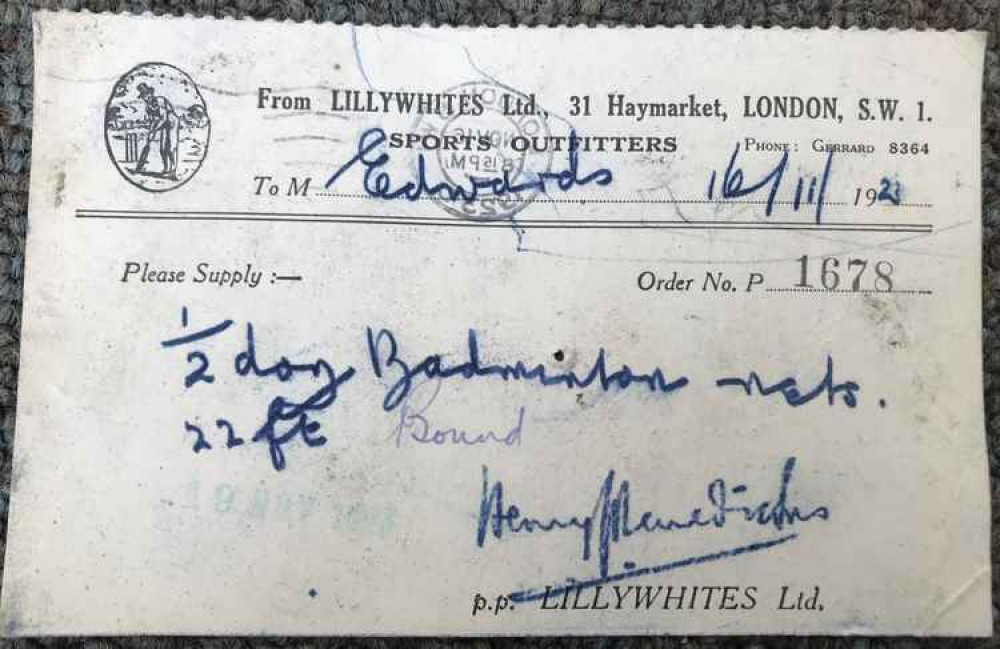 From LILLYWHITES Ltd., 31 Haymarket, LONDON, S.W. 1.
SPORTS OUTFITTERS
PHONE: GERRARD 8364
To M Edwards 16/11/ 192
Please Supply :—
Order No. P 1678
1/2 doz Badminton nets.
22 ft Bound
Henry
p.p. LILLYWHITES Ltd.